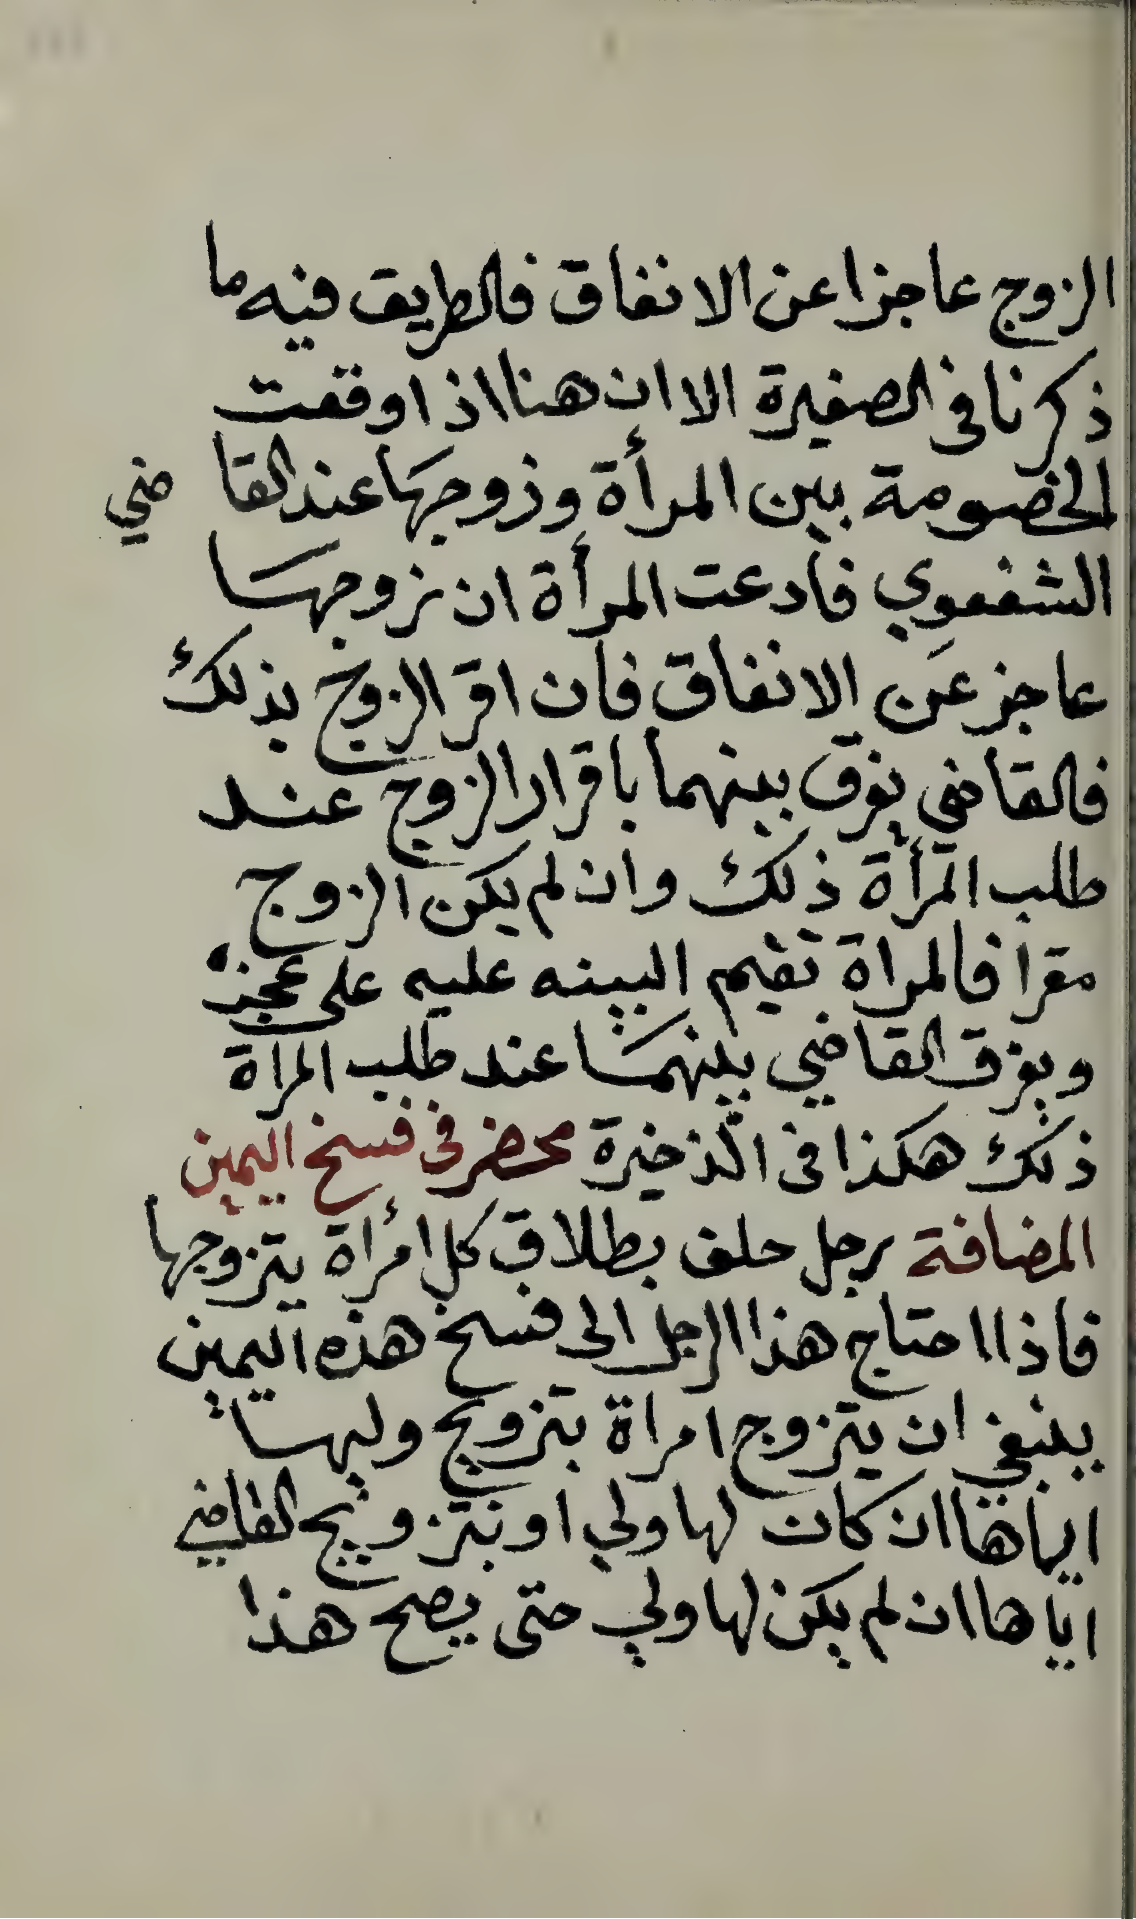 الزوج عاجزا عن الانفاق فالطريق فيه ما
ذكرنا فى الصغيرة الا ان هنا اذا وقعت
الخصومة بين المرأة وزوجها عند القاضي
الشفعوي فادعت المرأة ان زوجها
عاجز عن الانفاق فان اقر الزوج بذلك
فالقاضي يفرق بينهما باقرار الزوج عند
طلب المرأة ذلك وان لم يكن الزوج
مقرا فالمراة تقيم البينه عليه على عجزه
ويفرق القاضي بينهما عند طلب المراة
ذلك هكذا فى الذخيرة محضر فى فسخ اليمين
المضافة رجل حلف بطلاق كل امرأة يتزوجها
فاذا احتاج هذا الرجل الى فسخ هذه اليمين
ينبغي ان يتزوج امراة بتزويج وليها
اياها ان كان لها ولي او بتزويج القاضي
اياها ان لم يكن لها ولي حتى يصح هذا